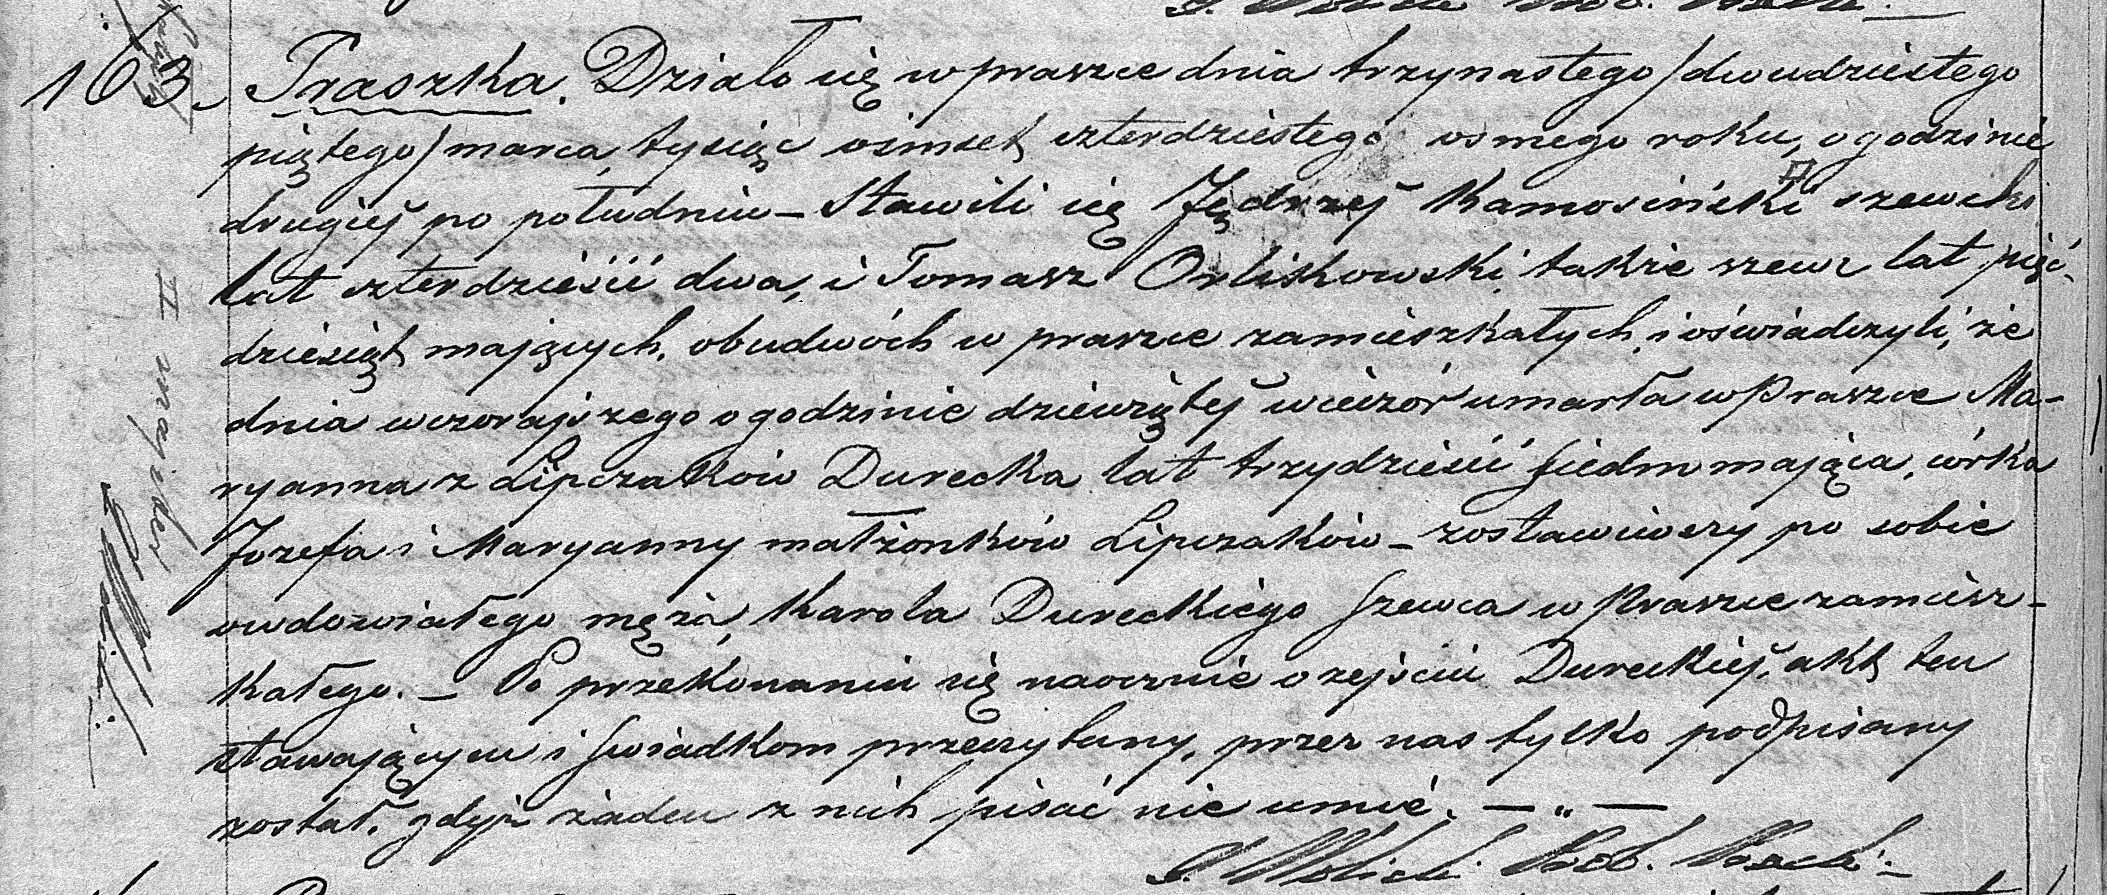 163. Praszka. Działo się w praszce dnia trzynastego /dwudziestego
piątego/ marca tysiąc ośmset czterdziestego osmego roku, o godzinie
drugiej po południu – Stawili się Jędrzej Kamosiński szewcki
lat czterdzieści dwa, i Tomasz Orliskowski także szewc lat pięć-
dziesiąt mających, obudwóch w praszce zamieszkałych, i oświadczyli, że
dnia wczorajszego o godzinie dziewiątej wieczór umarła w Praszce Ma-
ryanna z Lipczaków Durecka lat trzydzieści siedm mająca, córka
Jozefa i Maryanny małżonków Lipczaków – zostawiwszy po sobie
owdowiałego męża Karola Dureckiego szewca w Praszce zamiesz-
kałego. – Po przekonaniu się naocznie o zejściu Dureckiej, akt ten
stawającym i swiadkom przeczytany, przez nas tylko podpisany
został, gdyż żaden z nich pisać nie umié. – " –
II majster